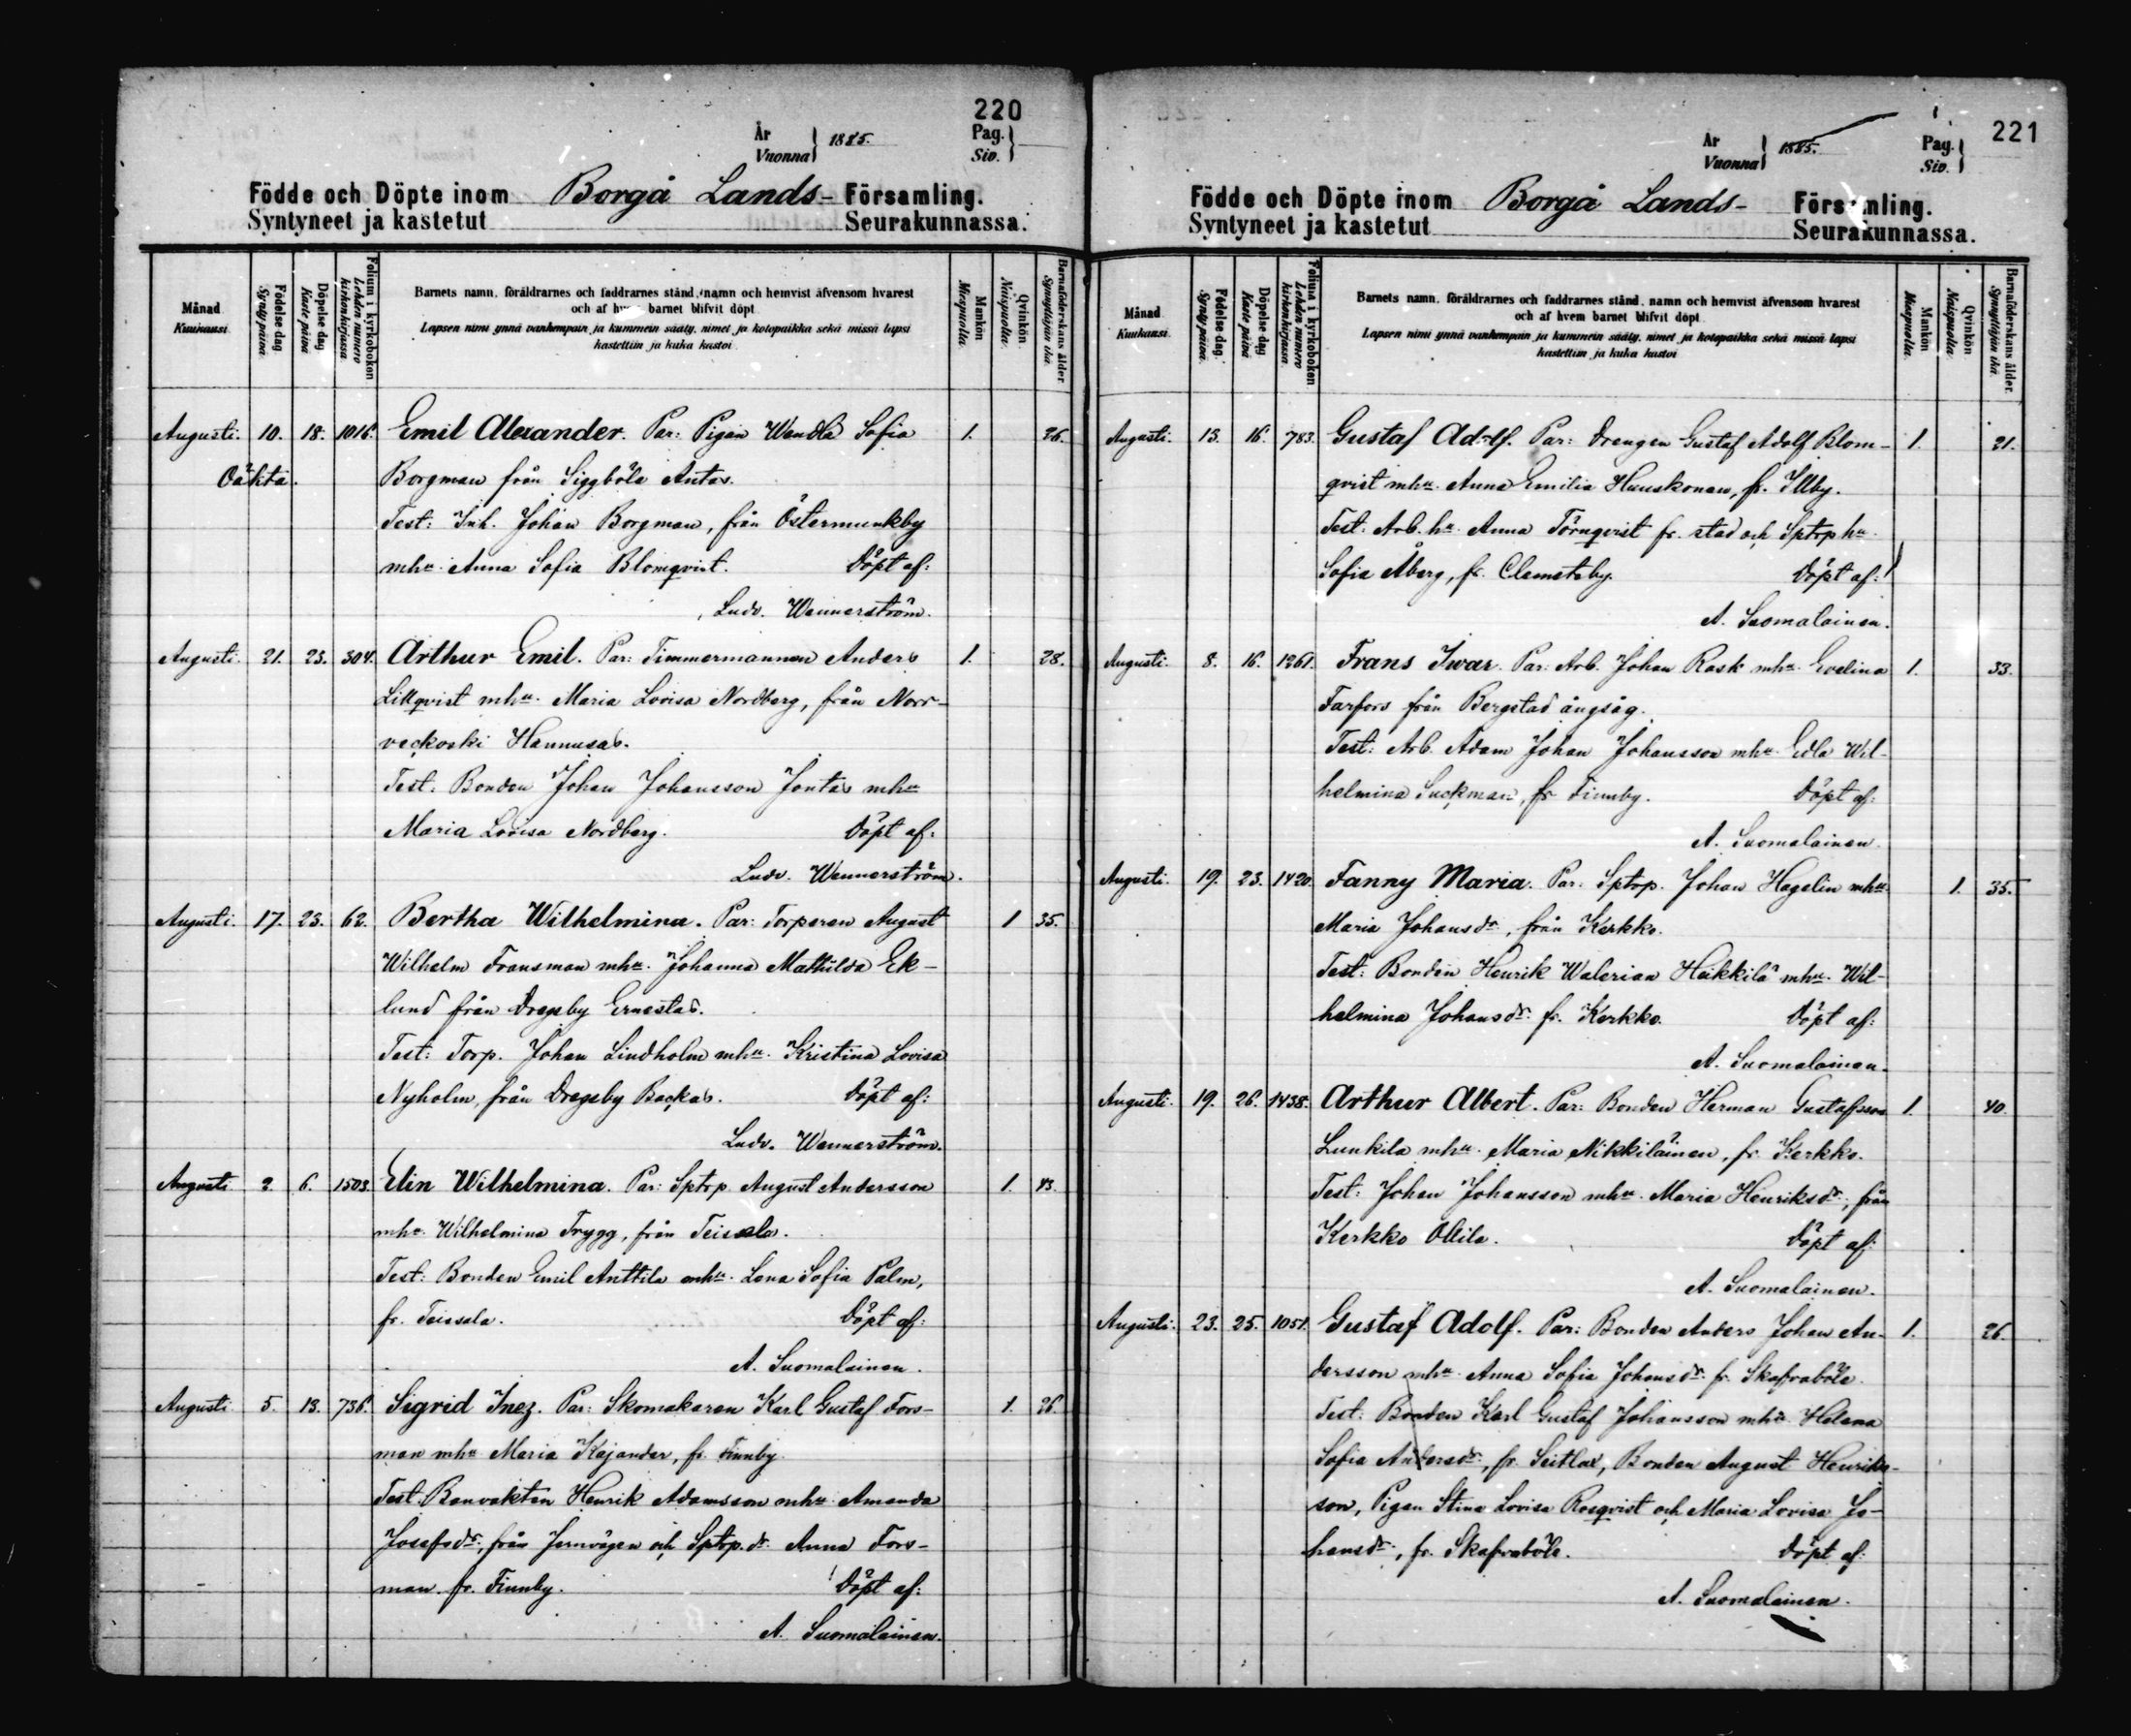 220
År
Vuonna } 1885.
Pag.
Siv. }
Födde och Döpte inom Borgå Lands- Församling.
Syntyneet ja kastetut Seurakunnassa.
Månad
Kuukausi.
Födelse dag.
Synty päivä.
Döpelse dag
Kaste päivä
Folium i kyrkoboken
Lehden numero kirkonkirjassa
Barnets namn, föräldrarnes och faddrarnes stånd, namn och hemvist äfvensom hvarest
och af hv barnet blifvit döpt
Lapsen nimi ynnä vanhempain ja kummein sääty, nimet ja kotopaikka sekä missä lapsi
kastettiin ja kuka kastoi
Mankön
Miespuolta.
Qvinkön
Naispuolta.
Barnaföderskans ålder.
Synnyttäjän ikä.
Augusti. 10. 18. 1016. Emil Alexander. Par: Pigan Wendla Sofia 1. 26.
Oäkta. Borgman från Siggböle Antas.
Test: Inh. Johan Borgman, från Östermunkby
mhu. Anna Sofia Blomqvist. Döpt af:
Ludv. Wennerström.
Augusti. 21. 23. 304. Arthur Emil. Par: Timmermannen Anders 1. 28.
Lillqvist mhu. Maria Lovisa Nordberg, från Norr-
veckoski Hannusas.
Test: Bonden Johan Johansson Jontas mhu
Maria Lovisa Nordberg. Döpt af:
Ludv. Wennerström.
Augusti. 17. 23. 62. Bertha Wilhelmina. Par: Torparen August 1 35.
Wilhelm Fransman mhu. Johanna Mathilda Ek-
lund från Dregsby Ernestas.
Test: Torp. Johan Lindholm mhu. Kristina Lovisa
Nyholm, från Dregsby Backas. Döpt af:
Ludv. Wennerström.
Augusti 2. 6. 1503. Elin Wilhelmina. Par: Sptrp August Andersson 1. 43.
mhu. Wilhelmina Trygg, från Teissala.
Test: Bonden Emil Anttila mhu. Lena Sofia Palm,
fr. Teissala. Döpt af:
A. Suomalainen.
Augusti 5. 13. 736. Sigrid Inez. Par: Skomakaren Karl Gustaf Fors- 1. 26.
man mhu Maria Kajander, fr. Finnby.
Test: Banvakten Henrik Adamsson mhu. Amanda
Josefsdr., från Jernvägen och Sptrp. dr. Anna Fors-
man. fr. Finnby. Döpt af:
A. Suomalainen.
221
År
Vuonna } 1885.
Pag.
Siv. }
Födde och Döpte inom Borgå Lands- Församling.
Syntyneet ja kastetut Seurakunnassa.
Månad
Kuukausi.
Födelse dag.
Synty päivä.
Döpelse dag
Kaste päivä
Folium i kyrkoboken
Lehden numero kirkonkirjassa
Barnets namn, föräldrarnes och faddrarnes stånd, namn och hemvist äfvensom hvarest
och af hvem barnet blifvit döpt
Lapsen nimi ynnä vanhempain ja kummein sääty, nimet ja kotopaikka sekä missä lapsi
kastettiin ja kuka kastoi
Mankön
Miespuolta.
Qvinkön
Naispuolta.
Barnaföderskans ålder.
Synnyttäjän ikä.
Augusti. 13. 16. 783. Gustaf Adolf. Par: Drengen Gustaf Adolf Blom- 1. 21.
qvist mhu. Anna Emilia Huuskonen, fr. Illby.
Test: Arb. hu. Anna Törnqvist fr. stad och Sptrp hu
Sofia Åberg, fr. Clemetsby. Döpt af:
A. Suomalainen.
Augusti. 8. 16. 1261. Frans Iwar. Par: Arb. Johan Rask mhu. Evelina 1. 33.
Farfors från Bergstad ångsåg.
Test: Arb. Adam Johan Johansson mhu. Edla Wil-
helmina Suckman, fr Finnby. Döpt af:
A. Suomalainen.
Augusti. 19. 23. 1420. Fanny Maria. Par: Sptrp. Johan Hagelin mhu. 1. 35.
Maria Johansdr, från Kerkko.
Test: Bonden Henrik Walerian Heikkilä mhu. Wil-
helmina Johansdr. fr. Kerkko. Döpt af:
A. Suomalainen.
Augusti. 19. 26. 1438. Arthur Albert. Par: Bonden Herman Gustafsson 1. 40.
Lunkila mhu. Maria Nikkiläinen, fr. Kerkko.
Test: Johan Johansson mhu. Maria Henriksdr., från
Kerkko Ollila. Döpt af:
A. Suomalainen.
Augusti. 23. 25. 1051. Gustaf Adolf. Par: Bonden Anders Johan An- 1. 26.
dersson mhu. Anna Sofia Johansdr. fr. Skafraböle.
Test: Bonden Karl Gustaf Johansson mhu. Helena
Sofia Andersdr., fr. Seitlax, Bonden August Henriks-
son, Pigan Stina Lovisa Rosqvist och Maria Lovisa Jo-
hansdr., fr. Skafraböle. Döpt af:
A. Suomalainen.